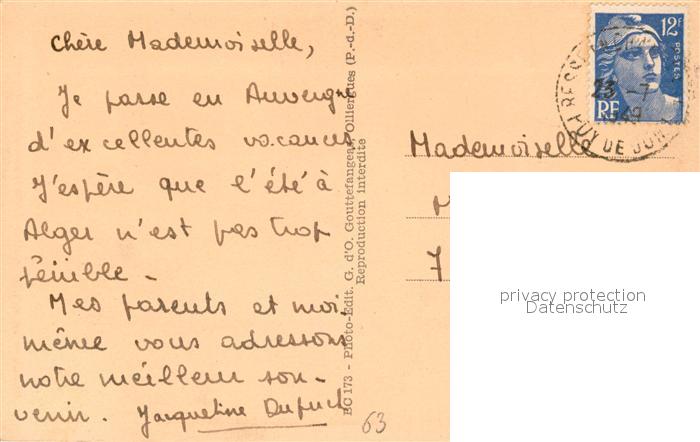 Chère Mademoiselle,
Je passe en Auvergne
d'excellentes vacances
J'espère que l'été à
Alger n'est pas trop
pénible -
Mes parents et moi-
même vous adressons
notre meilleur sou-
venir. Jacqueline
63
BC 173 - Photo-Edit. G. d'O. Gouttefangeas, Olliergues (P.-d.-D.)
Reproduction interdite
12F
POSTES
RF
23 -7
1949
PUY DE DOME
Mademoiselle
M
7
privacy protection
Datenschutz